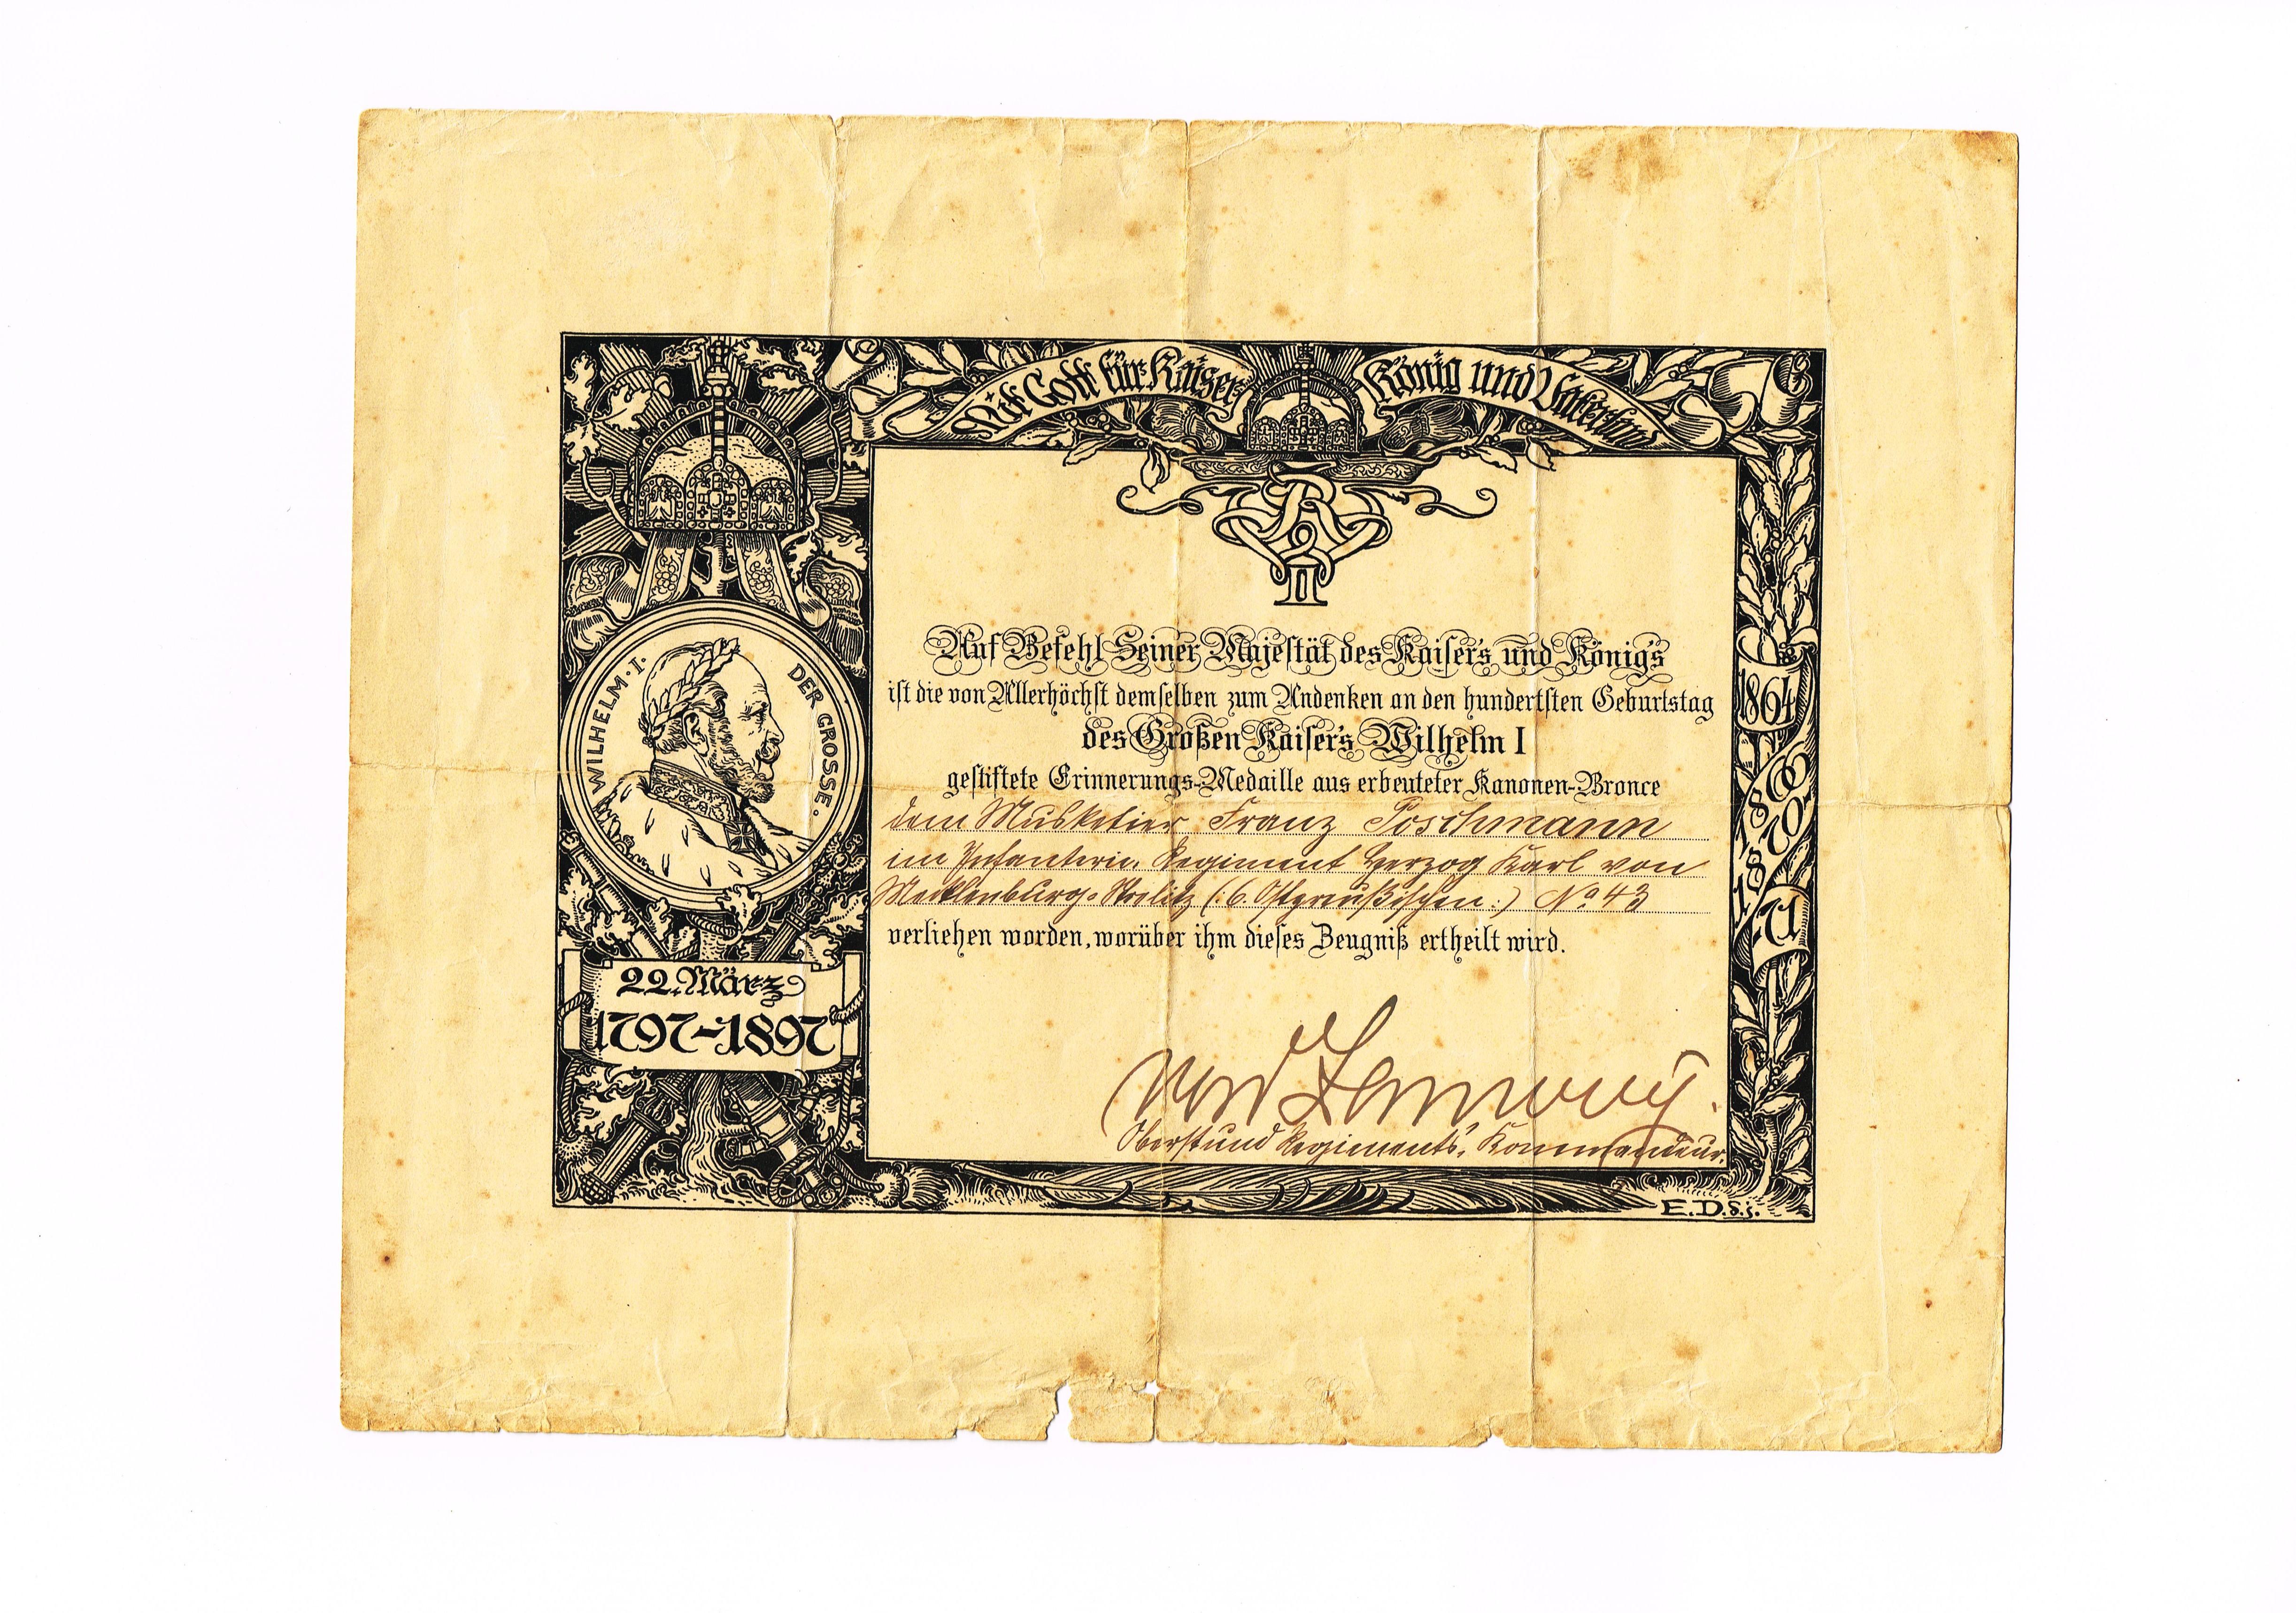 Mit Gott für Kaiser König und Vaterland
WILHELM · I · DER GROSSE ·
22. März
1797-1897
1864
1866
1870
71
Auf Befehl Seiner Majestät des Kaisers und Königs
ist die von Allerhöchst demselben zum Andenken an den hundertsten Geburtstag
des Großen Kaisers Wilhelm I
gestiftete Erinnerungs-Medaille aus erbeuteter Kanonen-Bronce
dem Musketier Franz Poschmann
im Infanterie Regiment Herzog Karl von
Mecklenburg-Strelitz (:6. Ostpreußischen:) No 43
verliehen worden, worüber ihm dieses Zeugniß ertheilt wird.
von
Oberst und Regiments-Kommandeur.
E.D.d.j.